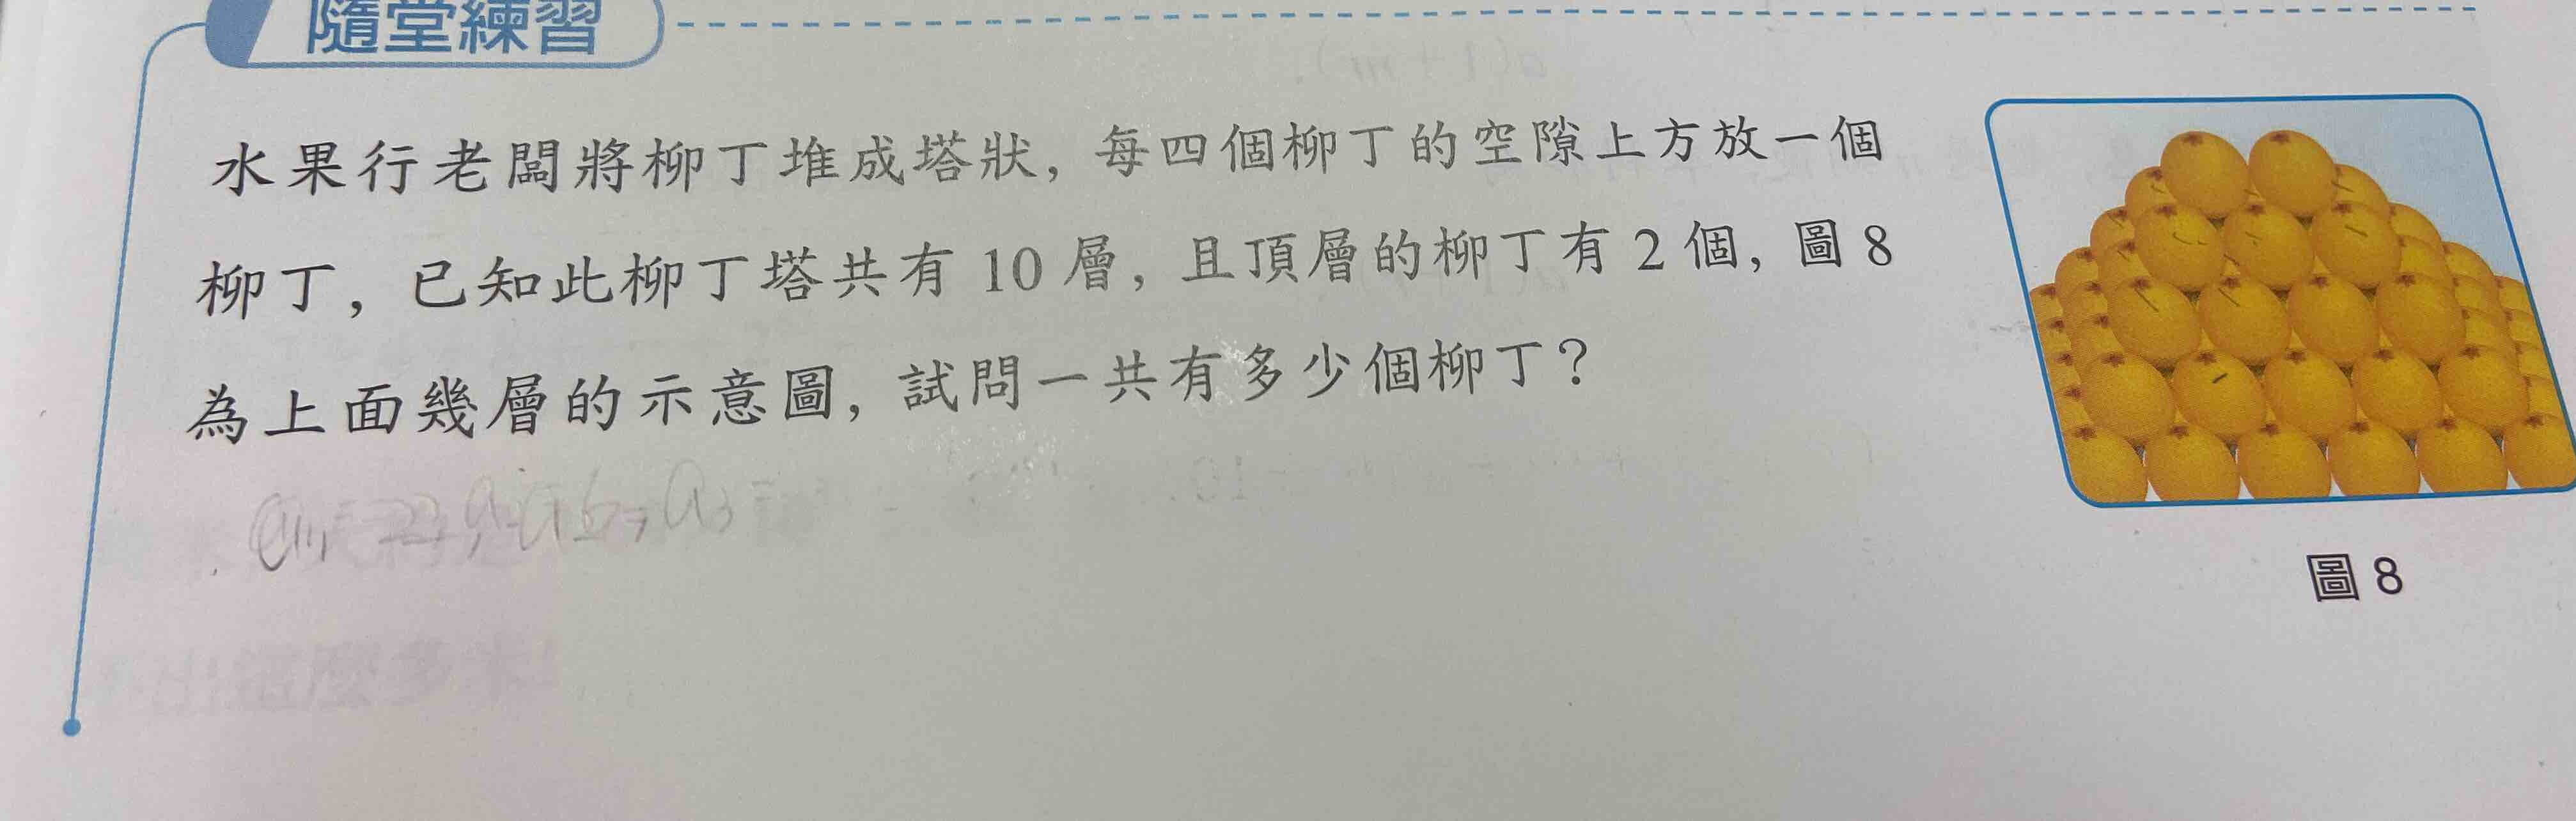 隨堂練習
水果行老闆將柳丁堆成塔狀，每四個柳丁的空隙上方放一個
柳丁，已知此柳丁塔共有 10 層，且頂層的柳丁有 2 個，圖 8
為上面幾層的示意圖，試問一共有多少個柳丁？
圖 8